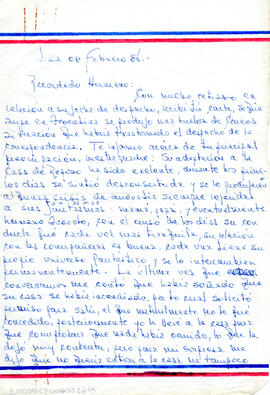 22 de Febrero 86.-
Recordado Hermano:
Con mucho retraso en
relación a su fecha de despacho, recibí tu carta, según
supe en fronteras se produjo una huelga de
situación que había trastornado el despacho de la
correspondencia. Te informo acerca de tu principal
preocupación, nuestra madre: Su adaptación a la
Casa de Reposo ha sido excelente, durante los prime-
ros días se sintió desconcertada y se le produjeron
algunas crisis de angustia siempre referidas
a sus fantasmas: mamá, y eventualmente
hermano Ernesto, con el curso de los días su con
ducta fue cada vez más tranquila, su relación
con las compañeras es buena, cada una tiene su
propio universo fantástico y se lo intercambian
permanentemente. La última vez que
conversamos me contó que había soñado que
su casa se había incendiado, para lo cual solicitó
permiso para salir, el que naturalmente no le fue
concedido, posteriormente yo la llevé a la casa para
que comprobara que nada había ocurrido, lo que la
dejó muy contenta, pero para mi sorpresa me
dijo que no quería estar en la casa ni tampoco